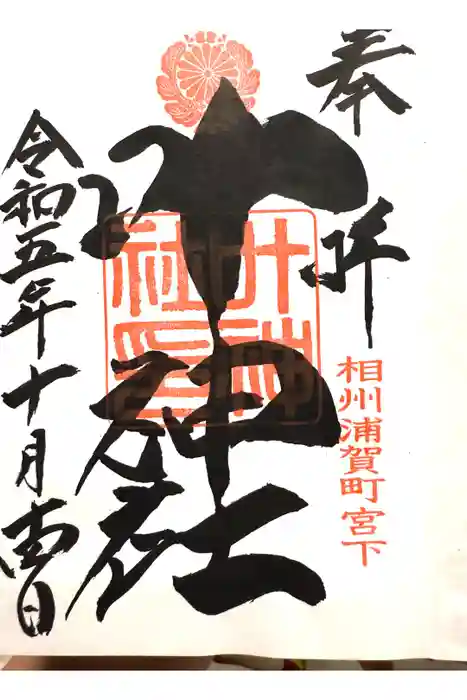 奉拝
相州浦賀町宮下
叶神社
叶神
社印
令和五年十月 日